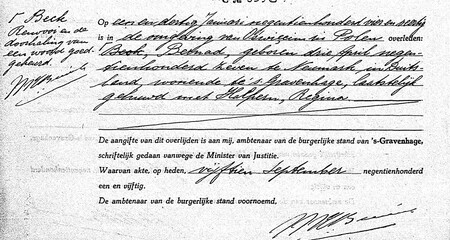 Beck
Renvooi en de
doorhaling van
een woord goed-
gekeurd.
Op een en dertig Januari negentienhonderd vier en veertig
is in de omgeving van Oswiecim in Polen overleden:
Beck, Betnad, geboren drie April negen-
tienhonderd zeven te Neumark, in Duits-
land, wonende te 's Gravenhage, laatstelijk
gehuwd met Halpern, Regina
De aangifte van dit overlijden is aan mij, ambtenaar van de burgerlijke stand van 's-Gravenhage,
schriftelijk gedaan vanwege de Minister van Justitie.
Waarvan akte, op heden, vijftien September negentienhonderd
een en vijftig.
De ambtenaar van de burgerlijke stand voornoemd,